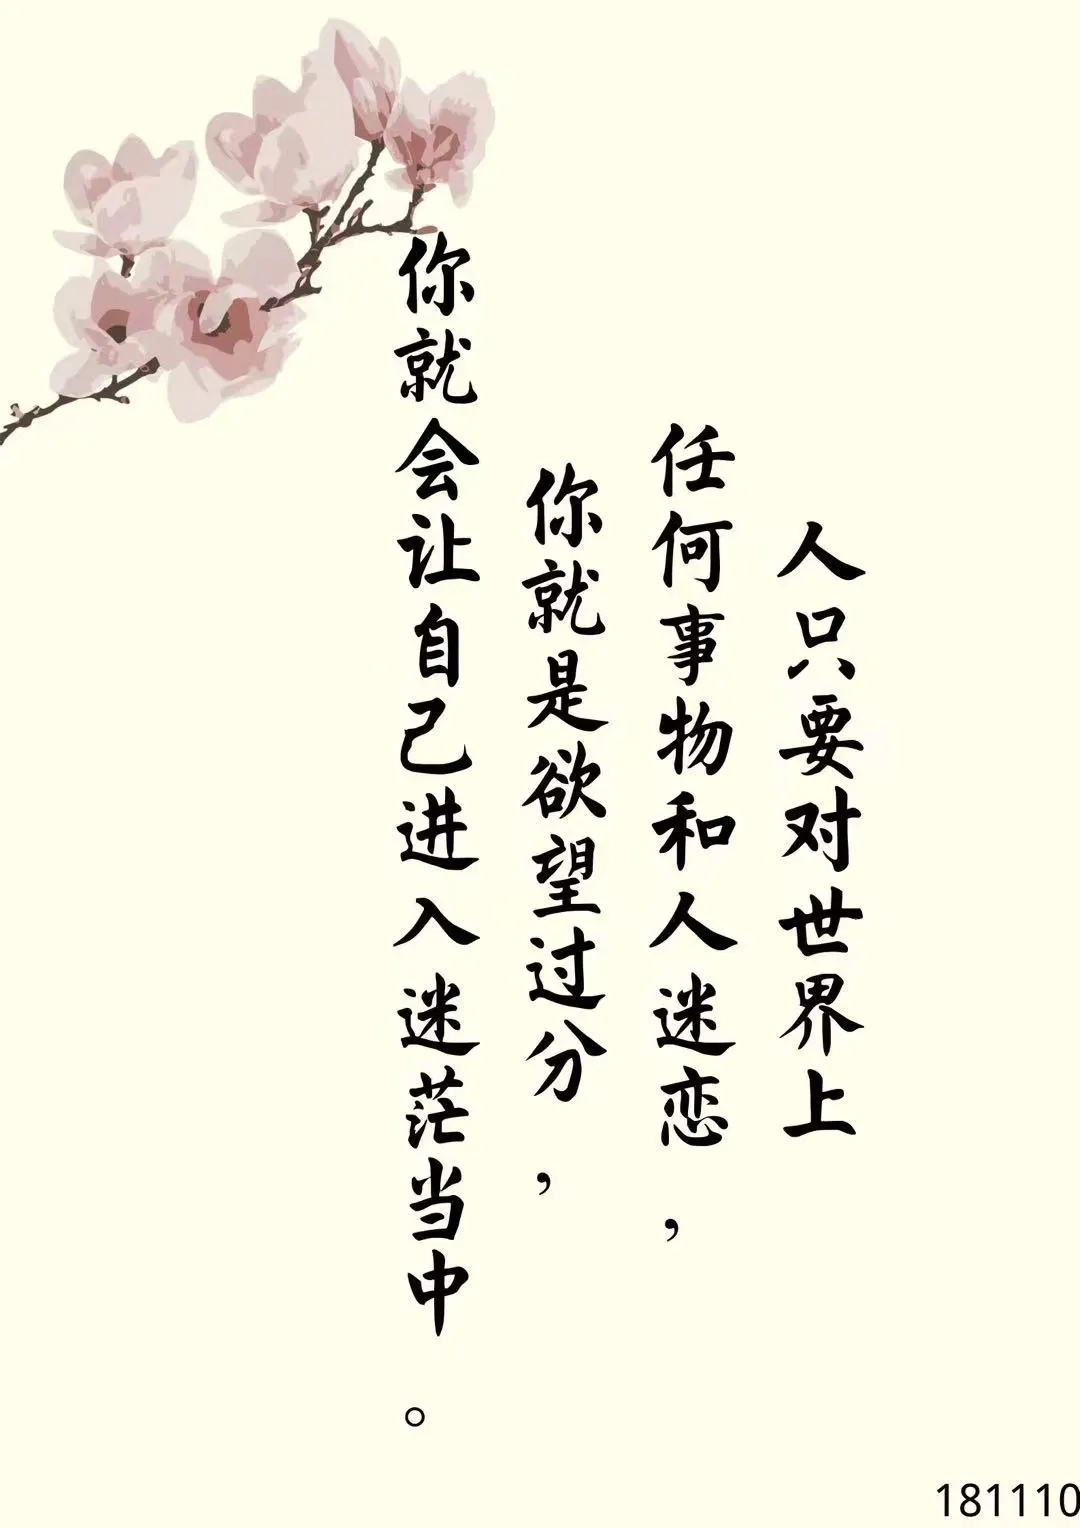 人只要对世界上
任何事物和人迷恋，
你就是欲望过分，
你就会让自己进入迷茫当中。
181110